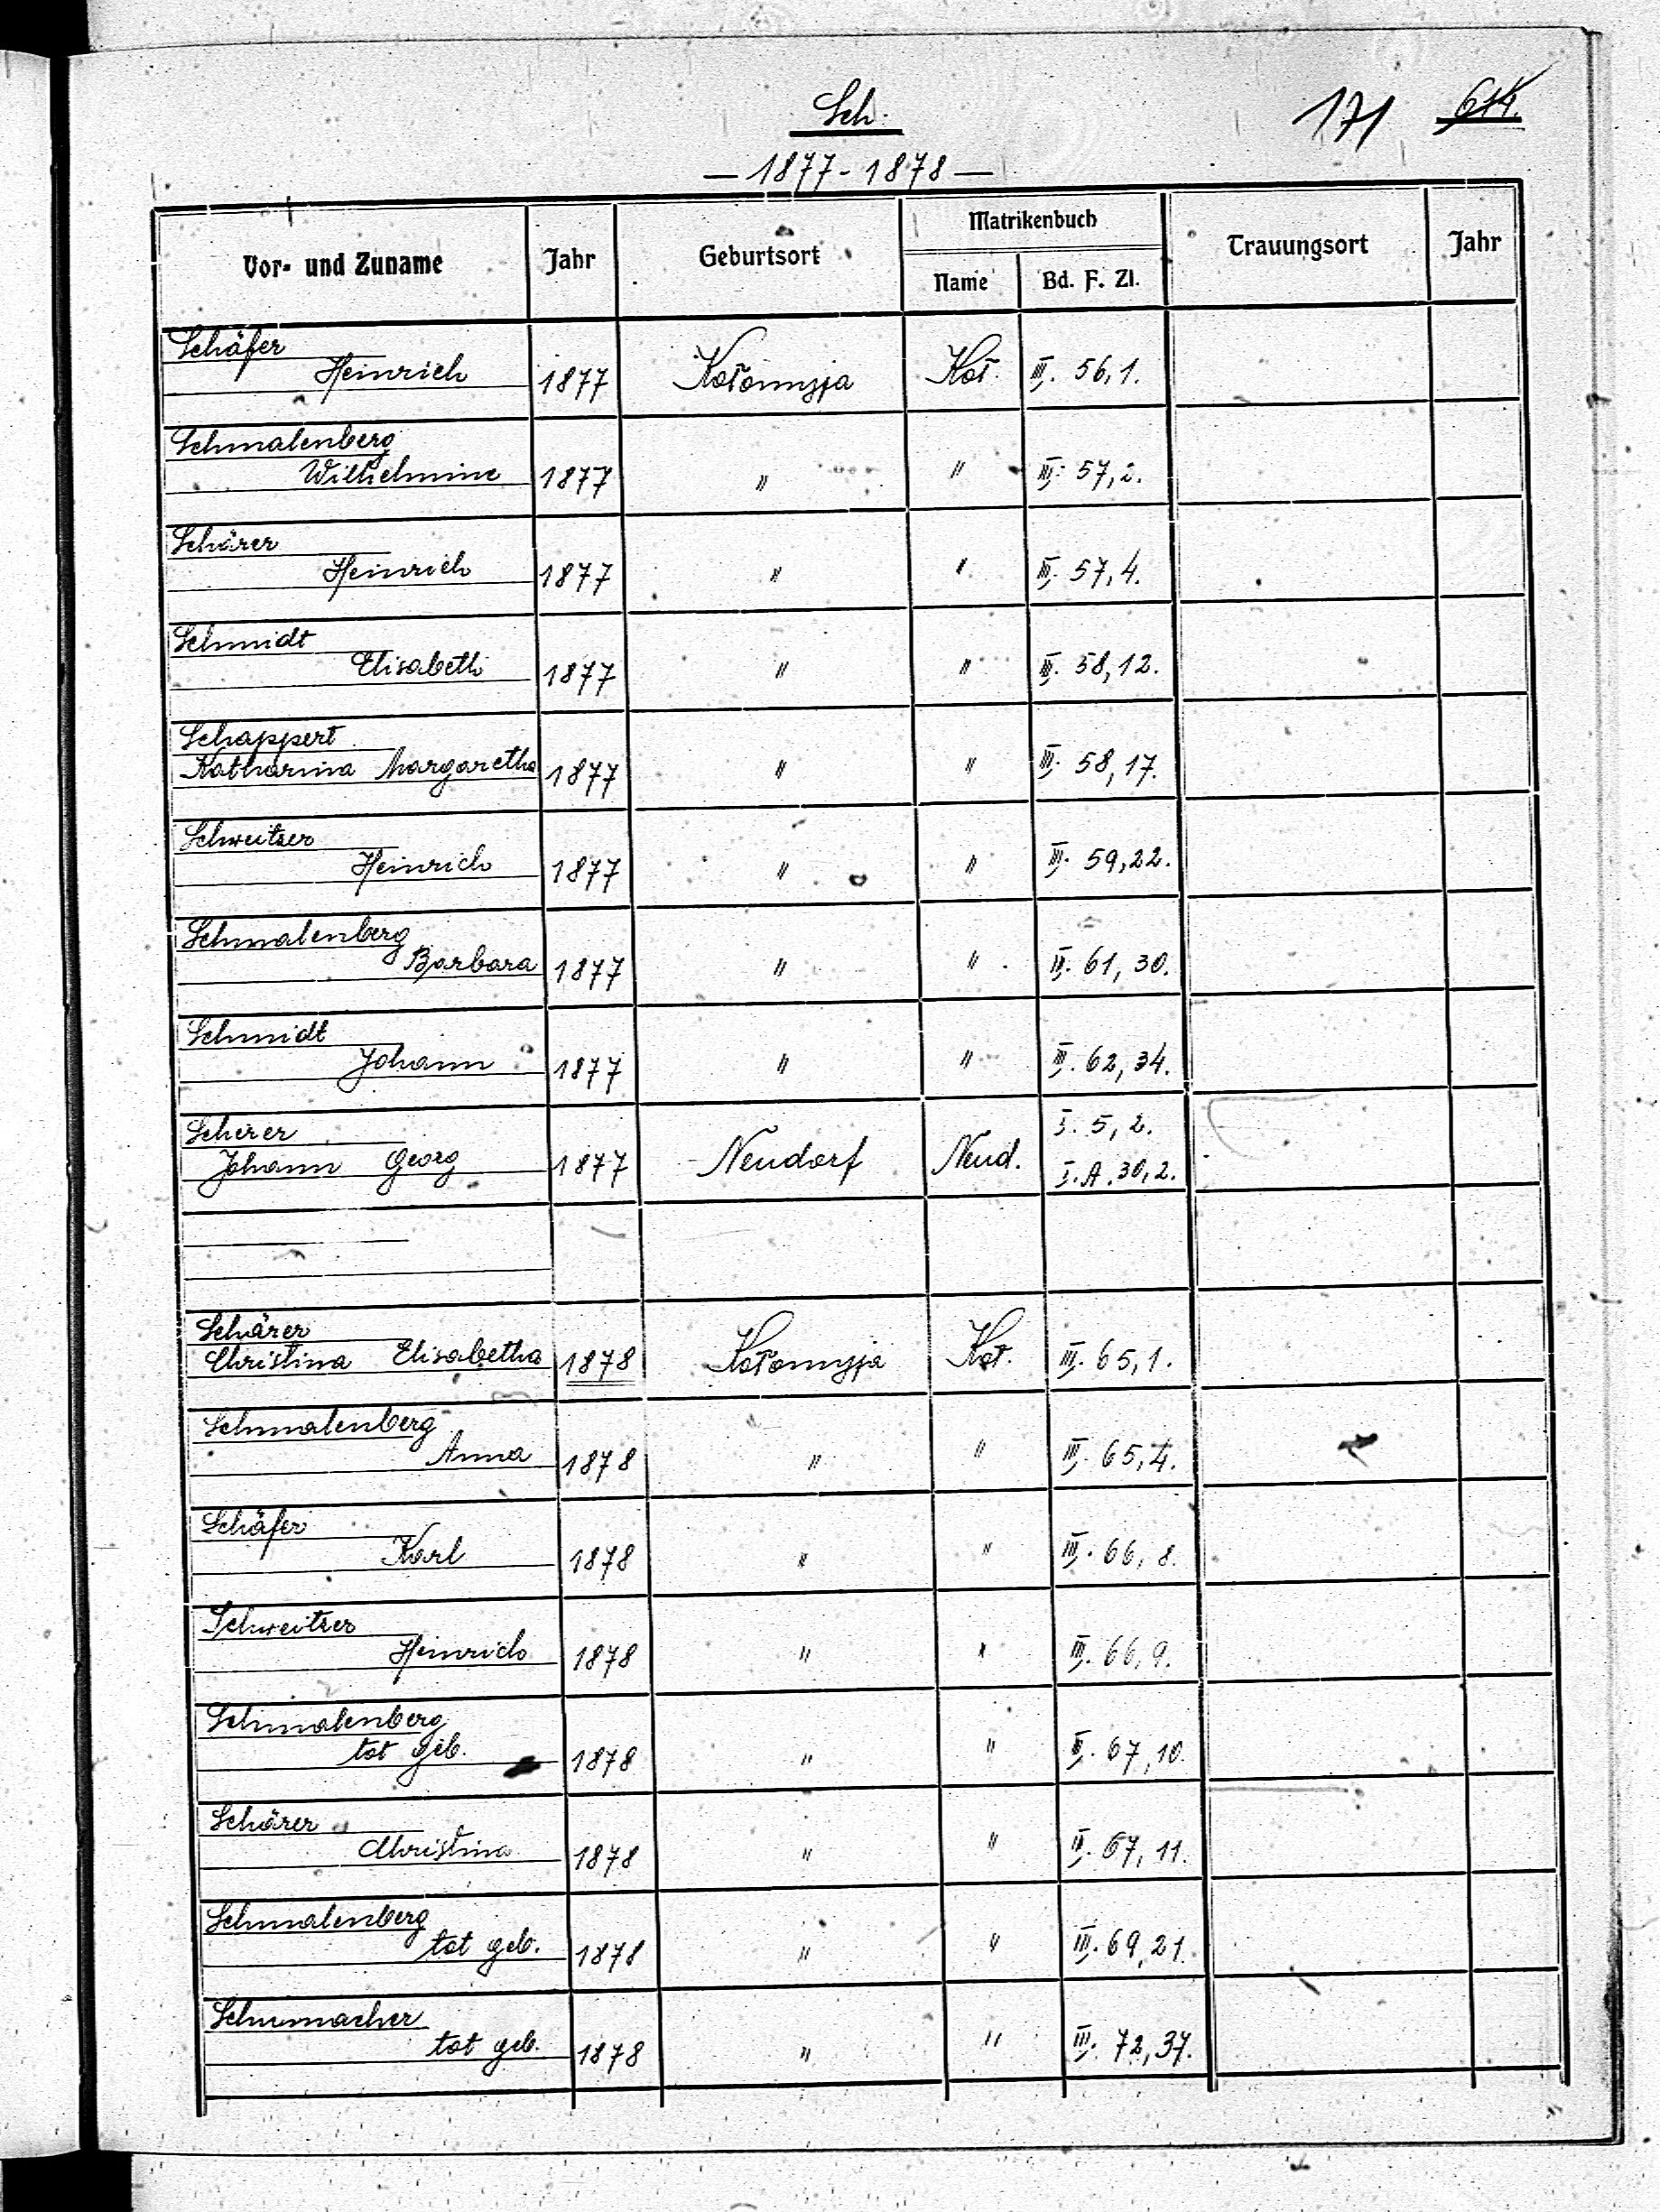 Sch.
171 614.
— 1877-1878 —
Vor- und Zuname Jahr Geburtsort Matrikenbuch Trauungsort Jahr
Name Bd. F. Zl.
Schäfer
Heinrich 1877 Kołomyja Koł. III. 56,1.
Schmalenberg
Wilhelmine 1877 " " III. 57,2.
Schärer
Heinrich 1877 " " III. 57,4.
Schmidt
Elisabeth 1877 " " III. 58,12.
Schappert
Katharina Margaretha 1877 " " III. 58,17.
Schweitzer
Heinrich 1877 " " III. 59,22.
Schmalenberg
Barbara 1877 " " III. 61,30.
Schmidt
Johann 1877 " " III. 62,34.
Scherer I. 5,2.
Johann Georg 1877 Neudorf Neud. I.A.30,2.
Schärer
Christina Elisabetha 1878 Kołomyja Koł. III. 65,1.
Schmalenberg
Anna 1878 " " III. 65,4.
Schäfer
Karl 1878 " " III. 66,8.
Schweitzer
Heinrich 1878 " " III. 66,9.
Schmalenberg
tot geb. 1878 " " III. 67,10.
Schärer
Christina 1878 " " III. 67,11.
Schmalenberg
tot geb. 1878 " " III. 69,21.
Schumacher
tot geb. 1878 " " III. 72,37.